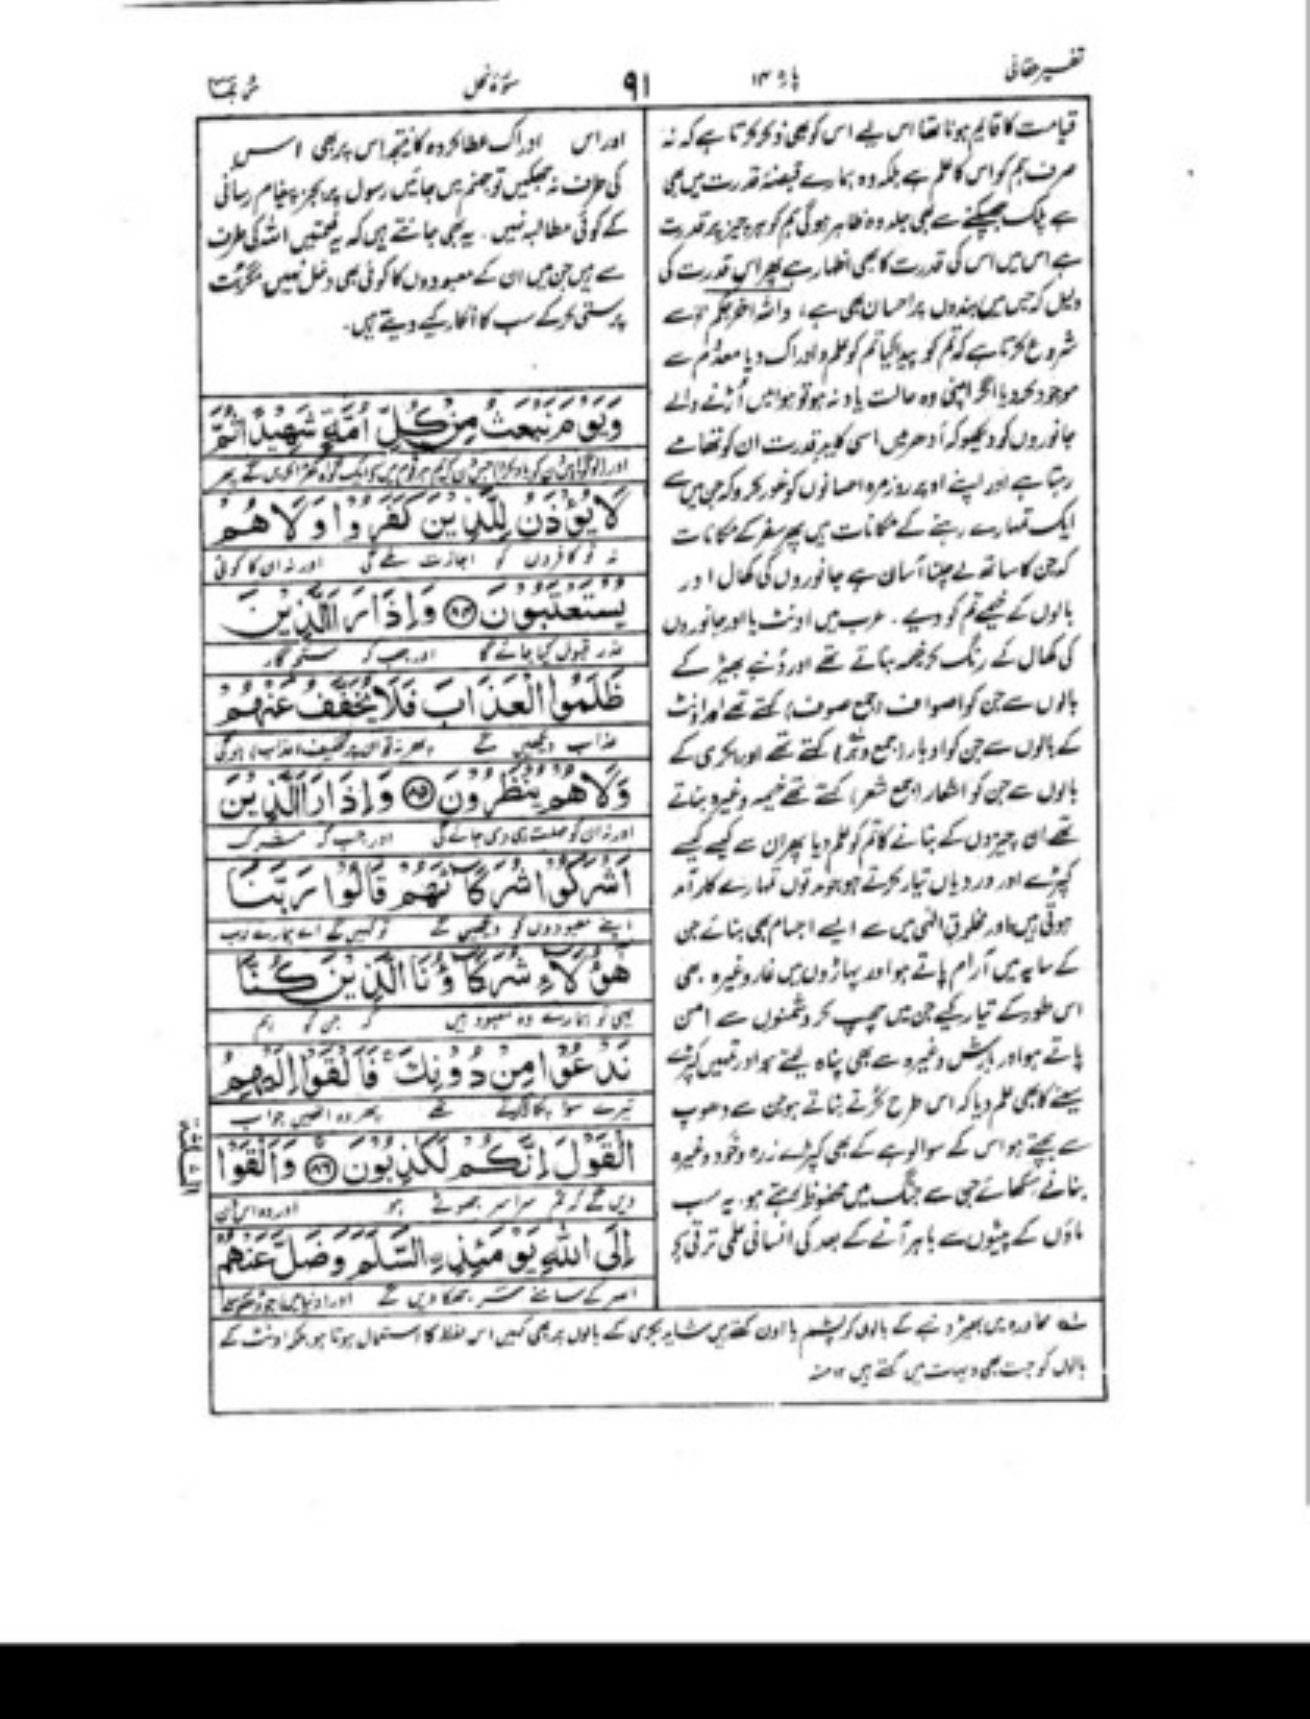 تفسیر حقانی
پارہ ۱۴
۹۱
سورۂ نحل
ربما
قیامت کا قایم ہونا تھا اس لیے اس کو بھی ذکر کرتا ہے کہ نہ
صرف ہم کو اس کا علم ہے بلکہ وہ ہمارے قبضۂ قدرت میں بھی
ہے پلک جھپکنے سے بھی جلد وہ ظاہر ہوگی ہم کو ہر چیز پر قدرت
ہے اس میں اس کی قدرت کا بھی اظہار ہے پھر اس قدرت کی
دلیل کہ جس میں بندوں پر احسان بھی ہے، واللہ اخرجکم سے
شروع کرتا ہے کہ تم کو پیدا کیا تم کو علم و ادراک دیا معدوم سے
موجود کر دیا اگر اپنی وہ حالت یاد نہ ہو تو ہوا میں اُڑنے والے
جانوروں کو دیکھو کہ اُدھر میں اسی کا یدِ قدرت ان کو تھامے
رہتا ہے اور اپنے اوپر روز مرہ احسانوں کو غور کرو کہ جن میں سے
ایک تمہارے رہنے کے مکانات ہیں پھر سفر کے مکانات
کہ جن کا ساتھ لے چلنا آسان ہے جانوروں کی کھال اور
بالوں کے خیمے تم کو دیے۔ عرب میں اونٹ یا اور جانوروں
کی کھال کے رنگ کر خیمہ بناتے تھے اور دُنبے بھیڑ کے
بالوں سے جن کو اصواف (جمع صوف) کہتے تھے اور اونٹ
کے بالوں سے جن کو اوبار (جمع وبر) کہتے تھے اور بکری کے
بالوں سے جن کو اشعار (جمع شعر) کہتے تھے خیمہ وغیرہ بناتے
تھے ان چیزوں کے بنانے کا تم کو علم دیا پھر ان سے کیسے کیسے
کپڑے اور دریاں تیار کرتے ہو جو مدتوں تمہارے کار آمد
ہوتی ہیں اور مخلوقِ الٰہی میں سے ایسے اجسام بھی بنائے جن
کے سایہ میں آرام پاتے ہو اور پہاڑوں میں غار وغیرہ بھی
اس طور کے تیار کیے جن میں چھپ کر دشمنوں سے امن
پاتے ہو اور بارش وغیرہ سے بھی پناہ لیتے ہو اور تمہیں کپڑے
سینے کا بھی علم دیا کہ اس طرح کُرتے بناتے ہو جن سے دھوپ
سے بچتے ہو اس کے سوا لوہے کے بھی کپڑے زرہ و خود وغیرہ
بنانے سکھائے جن سے جنگ میں محفوظ رہتے ہو۔ یہ سب
ماؤں کے پیٹوں سے باہر آنے کے بعد کی انسانی علمی ترقی ہے
اور اس ادراک عطا کردہ کا نتیجہ اس پر بھی اس
کی طرف نہ جھکیں تو جہنم میں جائیں رسول پر بجز پیغام رسانی
کے کوئی مطالبہ نہیں۔ یہ بھی جانتے ہیں کہ یہ نعمتیں اللہ کی طرف
سے ہیں جن میں ان کے معبودوں کا کوئی بھی دخل نہیں مگر بت
پرستی کر کے سب کا انکار کیے دیتے ہیں۔
وَيَوْمَ نَبْعَثُ مِنْ كُلِّ اُمَّةٍ شَهِيْدًا ثُمَّ
اور ہر قوم میں سے ایک گواہ کھڑا کریں گے پھر
لَا يُؤْذَنُ لِلَّذِيْنَ كَفَرُوْا وَلَا هُمْ
نہ تو کافروں کو اجازت ملے گی اور نہ ان کا کوئی
يُسْتَعْتَبُوْنَ ۸۴ وَاِذَا رَاَ الَّذِيْنَ
عذر قبول کیا جائے گا اور جب کہ ستم گار
ظَلَمُوا الْعَذَابَ فَلَا يُخَفَّفُ عَنْهُمْ
عذاب دیکھیں گے پھر نہ تو ان پر تخفیف (عذاب) ہوگی
وَلَا هُمْ يُنْظَرُوْنَ ۸۵ وَاِذَا رَاَ الَّذِيْنَ
اور نہ ان کو مہلت ہی دی جائے گی اور جب کہ مشرک
اَشْرَكُوْا شُرَكَآءَهُمْ قَالُوْا رَبَّنَا
اپنے معبودوں کو دیکھیں گے تو کہیں گے اے ہمارے رب
هٰٓؤُلَآءِ شُرَكَآؤُنَا الَّذِيْنَ كُنَّا
یہی تو ہمارے وہ معبود ہیں کہ جن کو ہم
نَدْعُوْا مِنْ دُوْنِكَ فَاَلْقَوْا اِلَيْهِمُ
تیرے سوا پکارتے تھے پھر وہ انھیں جواب
الْقَوْلَ اِنَّكُمْ لَكٰذِبُوْنَ ۸۶ وَاَلْقَوْا
دیں گے کہ تم سراسر جھوٹے ہو اور وہ اس دن
اِلَى اللّٰهِ يَوْمَئِذِ ۣالسَّلَمَ وَضَلَّ عَنْهُمْ
اللہ کے سامنے سر جھکا دیں گے اور
لہ محاورہ میں بھیڑ دنبے کے بالوں کو پشم یا اون کہتے ہیں شاید بکری کے بالوں پر بھی کہیں اس لفظ کا استعمال ہوتا ہو بلکہ اونٹ کے
بالوں کو جت بھی دیہات میں کہتے ہیں ۱۲ منہ